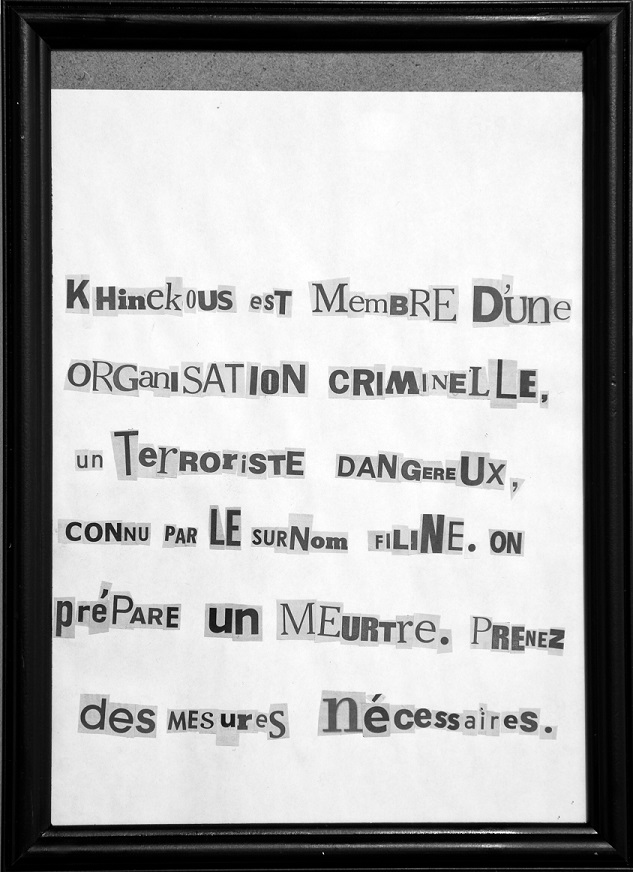 KHinekOUS esT MemBRE D'une
ORGanISATION CRIMINELLE,
un TerRORiSTE DANGEREUX,
CONNU PAR LE SURNom FILINE. ON
préPARE un MEURTre. PRENEZ
des MESureS nécessaires.